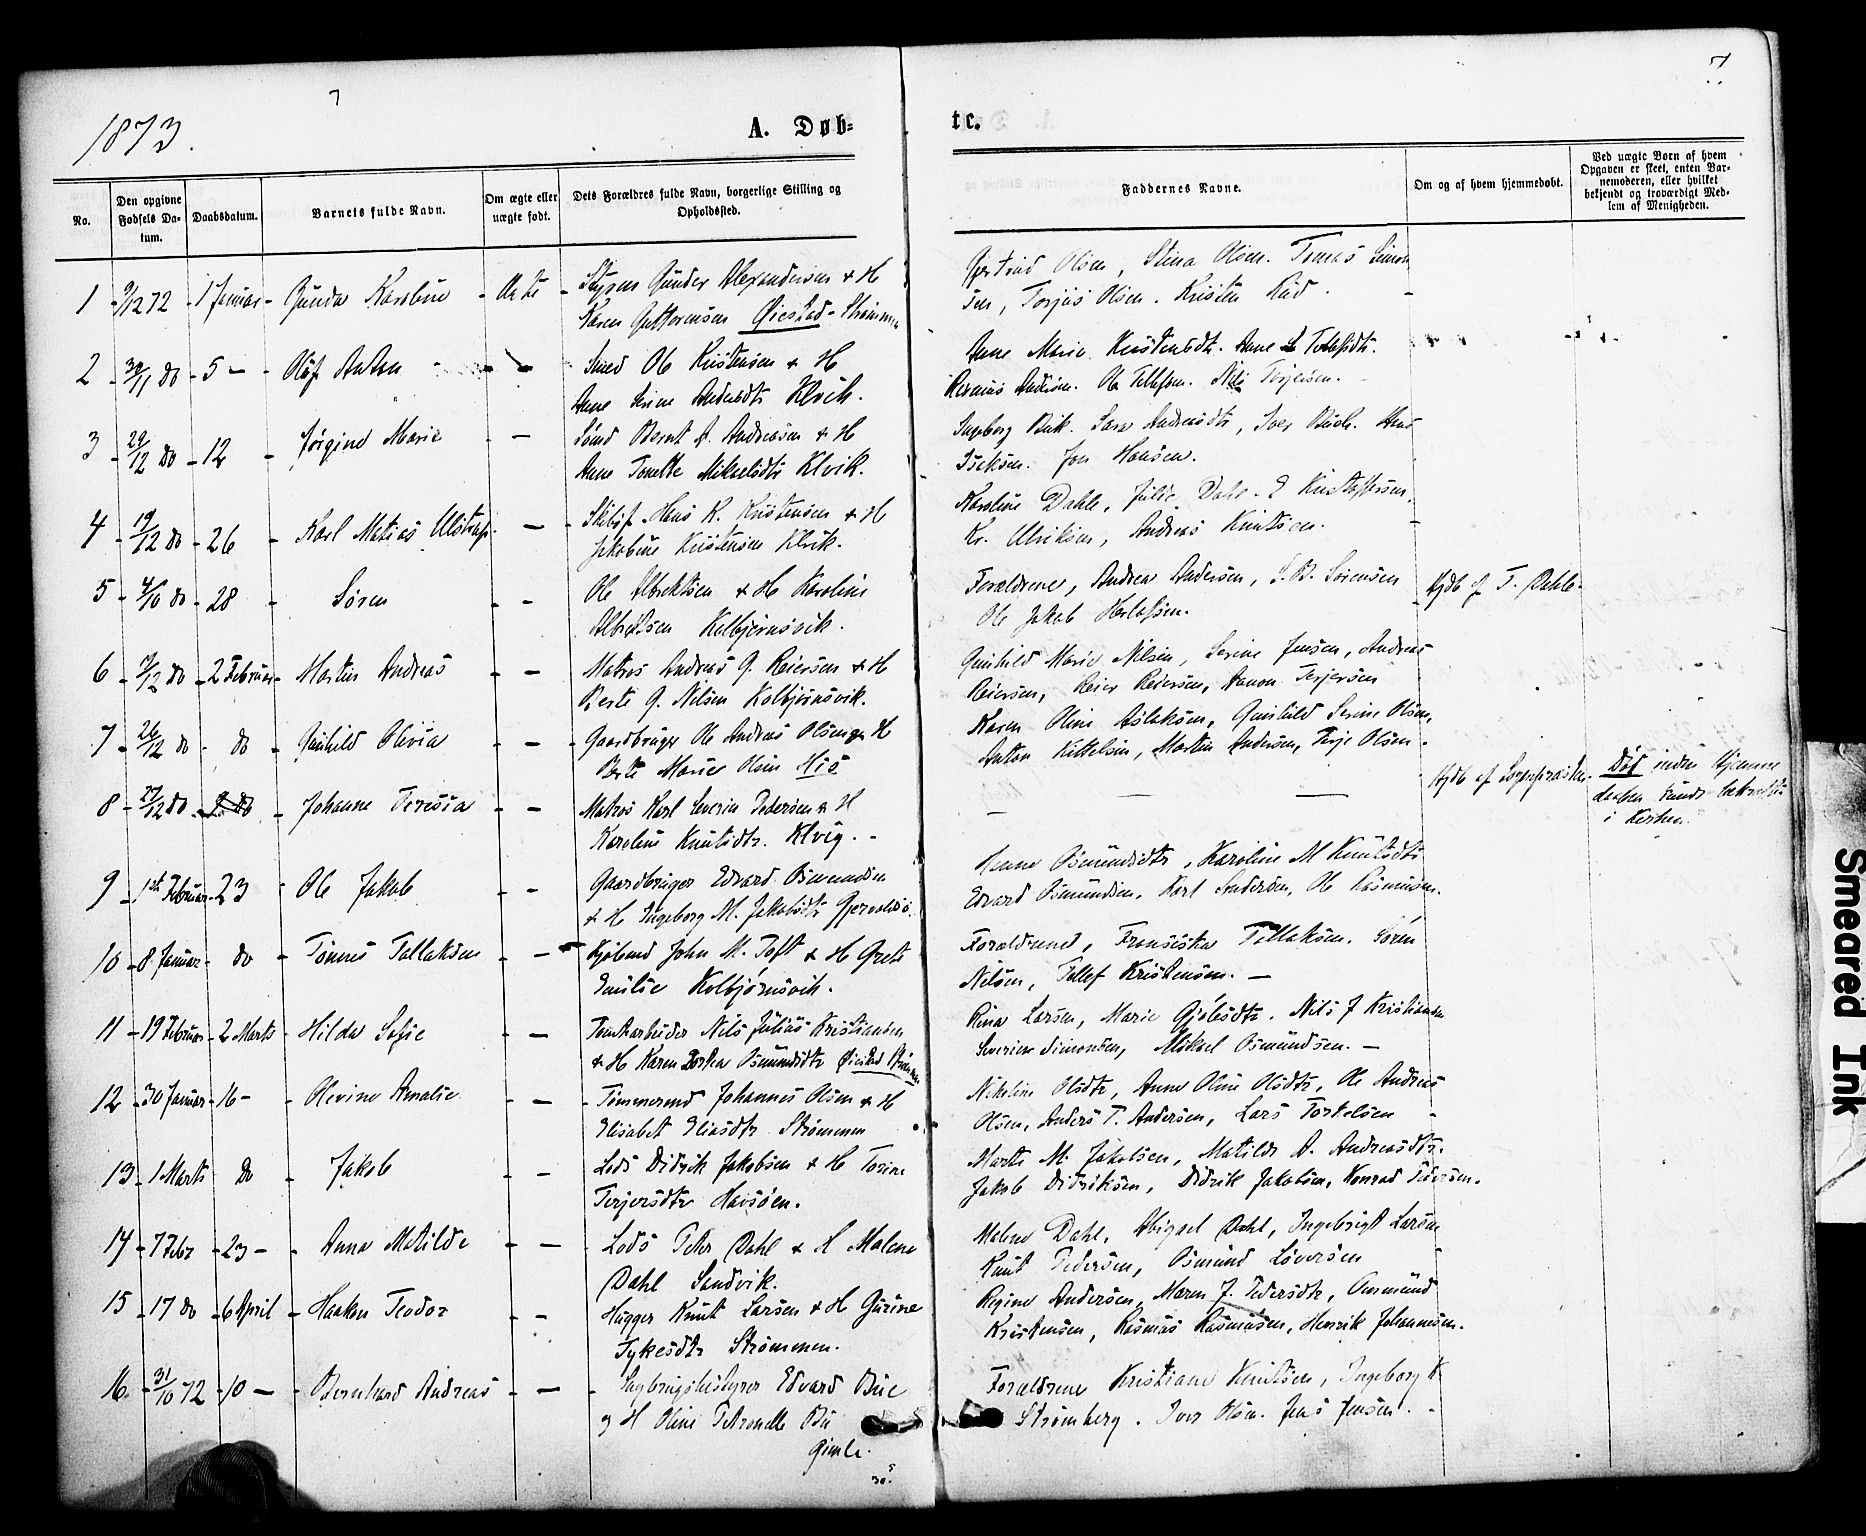 7
7
1873.
A. Døb-
te.
No.
Den opgivne Fødsels Da-
tum.
Daabsdatum.
Barnets fulde Navn.
Om ægte eller
uægte født.
Dets Forældres fulde Navn, borgerlige Stilling og
Opholdssted.
Faddernes Navne.
Om og af hvem hjemmedøbt.
Ved uægte Børn af hvem
Opgaven er skeet, enten Bar-
nemoderen, eller hvilket
bekjendt og troværdigt Med-
lem af Menigheden.
1 9/12 72 1 Januar Gunda Karoline Ægte Gunder Alexandersen & H
Karen Guttormsen Øiestad - Strømmen
Gertrud Olsen, Stina Olsen. Tomas Simon
sen, Olsen. Kristen
2 30/11 do 5 - Olaf Anton - Smed Ole Kristensen & H
Anne Andersdtr Klvik.
Anne Marie Kristensdtr. Anne
Ole Tellefsen. Nils Terjesen.
3 29/12 do 12 Jørgine Marie - Bernt A. Andreasen & H
Anne Tonette Mikkelsdtr Klvik.
Ingeborg Sara Andersdtr, Iver
Jon Hansen.
4 19/12 do 26 Karl Matias Ulstrup - Skibsf. Hans K. Kristensen & H
Jakobine Kristensen Klvik.
Karoline Dahle, Julie Dahl. E Kristoffersen
Kr. Ulriksen, Andreas Knutsen.
5 4/10 do 28 Søren - Ole Albrektsen & H Karoline
Albrektsen Kolbjørnsvik.
Forældrene, Andrea Andersen, S. B. Sørensen
Ole Jakob
Hjdb af F. Dahle
6 7/12 do 2 Februar Martin Andreas - Matros Andreas G. Reiersen & H
Berte G. Nilsen Kolbjørnsvik.
Gunhild Marie Nilsen, Serine Jensen, Andreas
Reiersen, Reier Reiersen, Terjesen
7 26/12 do do Gunhild Olivia - Gaardbruger Ole Andreas Olsen & H
Berte Marie Olsen His
Karen Oline Aslaksen, Gunhild Serine Olsen,
Anton Kittelsen, Martin Andersen, Terje Olsen.
8 27/12 do Johanne Teresia - Matros Karl Severin Pedersen & H
Karoline Knutsdtr. Klvig. -
Hjdb af Sognepræsten
Død inden Hjemme
daaben kunde bekræftes
i Kirken.
9 1ste Februar 23 Ole Jakob - Gaardbruger Edvard Osmundsen
& H Ingeborg M. Jakobsdtr Gjervoldsø.
Osmundsdtr, Karoline M Knutsdtr
Edvard Osmundsen, Karl Andersen, Ole Rasmusen.
10 8 Januar do Tønnes Tallaksen - Kjøbmd John M. Toft & H Grete
Emilie Kolbjørnsvik.
Forældrene, Fransiska Tallaksen. Søren
Nilsen, Tellef Kristensen. -
11 19 Februar 2 Marts Hilda Sofie - Nils Julius Kristiansen
& H Karen Osmundsdtr Øiestad Strømmen
Rina Larsen, Marie Nils J Kristiansen
Severine Simonsen, Mikael Osmundsen. -
12 30 Januar 16 - Olevine Amalie - Tømmermd Johannes Olsen & H
Elisabet Eliasdtr Strømmen
Nikoline Olsdtr, Anne Oline Olsdtr, Ole Andreas
Olsen, Anders T. Andersen, Lars Torkelsen -
13 1 Marts do Jakob - Lods Didrik Jakobsen & H Torine
Terjesdtr Havsøen.
Marte M. Jakobsen, Matilde A. Andreasdtr.
Jakob Didriksen, Didrik Jakobsen, Konrad Pedersen.
14 7 Febr 23 - Anna Matilde - Lods Peter Dahl & H Malene
Dahl Sandvik.
Malene Dahl, Abigael Dahl, Ingebrigt Larsen
Knut Pedersen, Osmund Løversen
15 17 do 6 April Haakon Teodor - Hugger Knut Larsen & H Gurine
Tykesdtr Strømmen.
Regine Andersen, Maren J. Pedersdtr, Osmund
Kristensen, Rasmus Rasmusen, Henrik Johannesen.
16 31/10 72 10 - Bernhard Andreas - Sagbrugsbestyrer Edvard Bue
og H Oline Petronelle Bu
Gimle.
Forældrene Kristiane Knutsen, Ingeborg K
Strømberg. Iver Olsen. Jens Jensen. -
30.
Smeared Ink